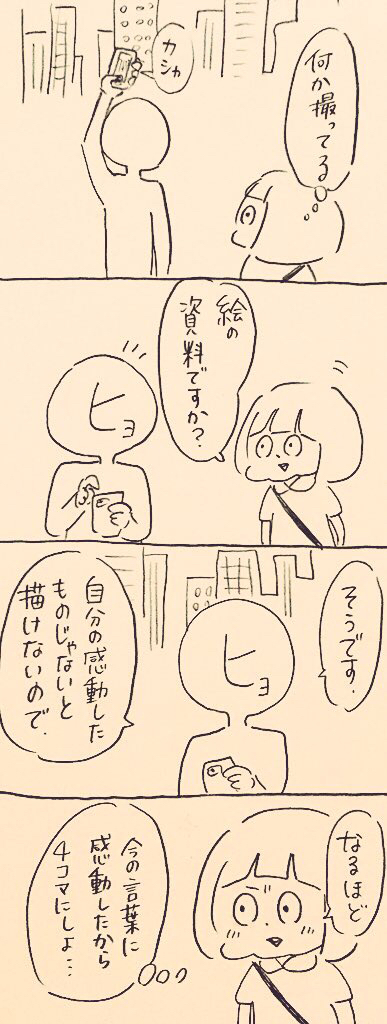 何か撮ってる
カシャ
絵の
資料ですか？
ヒョ
そうです.
ヒョ
自分の感動した
ものじゃないと
描けないので.
なるほど
今の言葉に
感動したから
4コマにしよ…